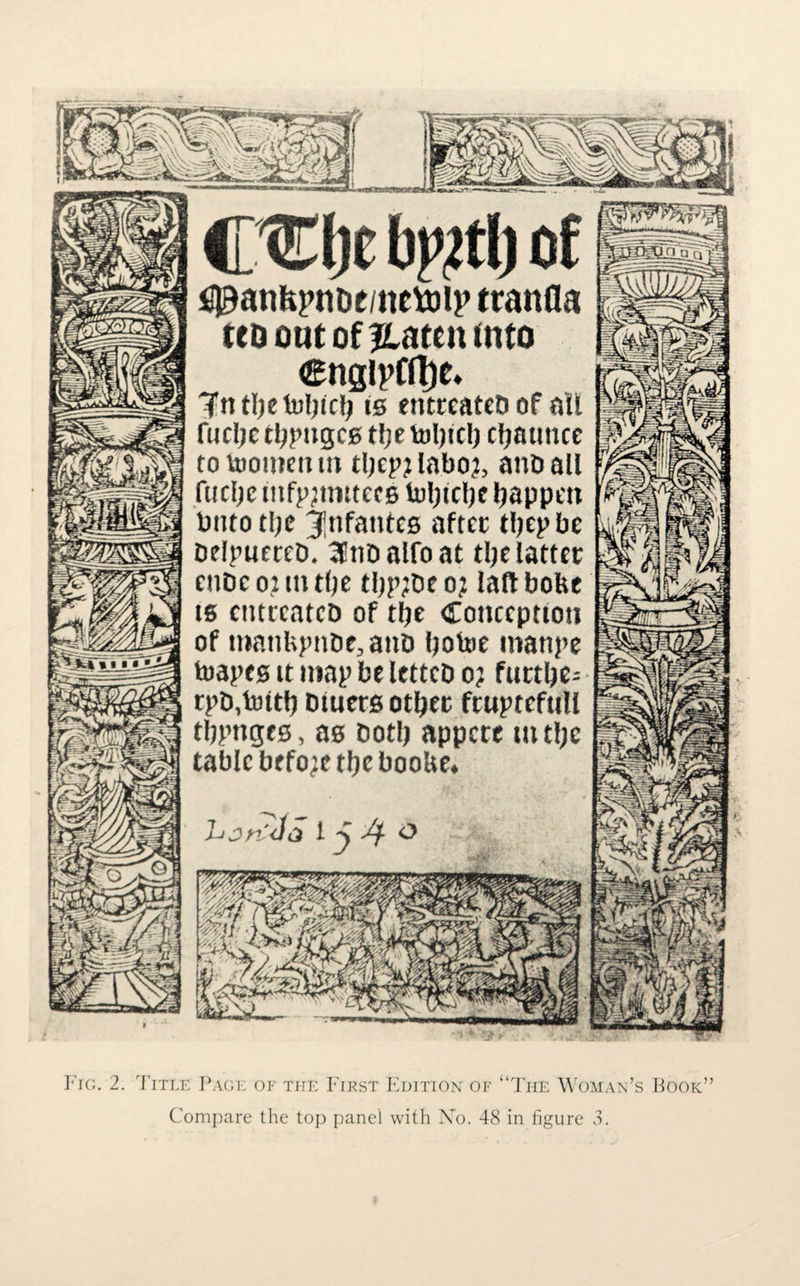 ¶ The byrth of
Mankynde / newly transla
ted out of Laten into
Englysshe.
In the which is entreated of all
suche thynges the which chaunce
to women in theyr labor, and all
suche infyrmitees whiche happen
vnto the Infantes after they be
delyuered. And also at the latter
ende or in the thyrde or last boke
is entreated of the Conception
of mankynde, and howe manye
wayes it may be letted or furthe=
ryd, with diuers other fruytefull
thynges, as doth appere in the
table before the booke.
Londō 1540
Fig. 2. Title Page of the First Edition of “The Woman’s Book”
Compare the top panel with No. 48 in figure 3.